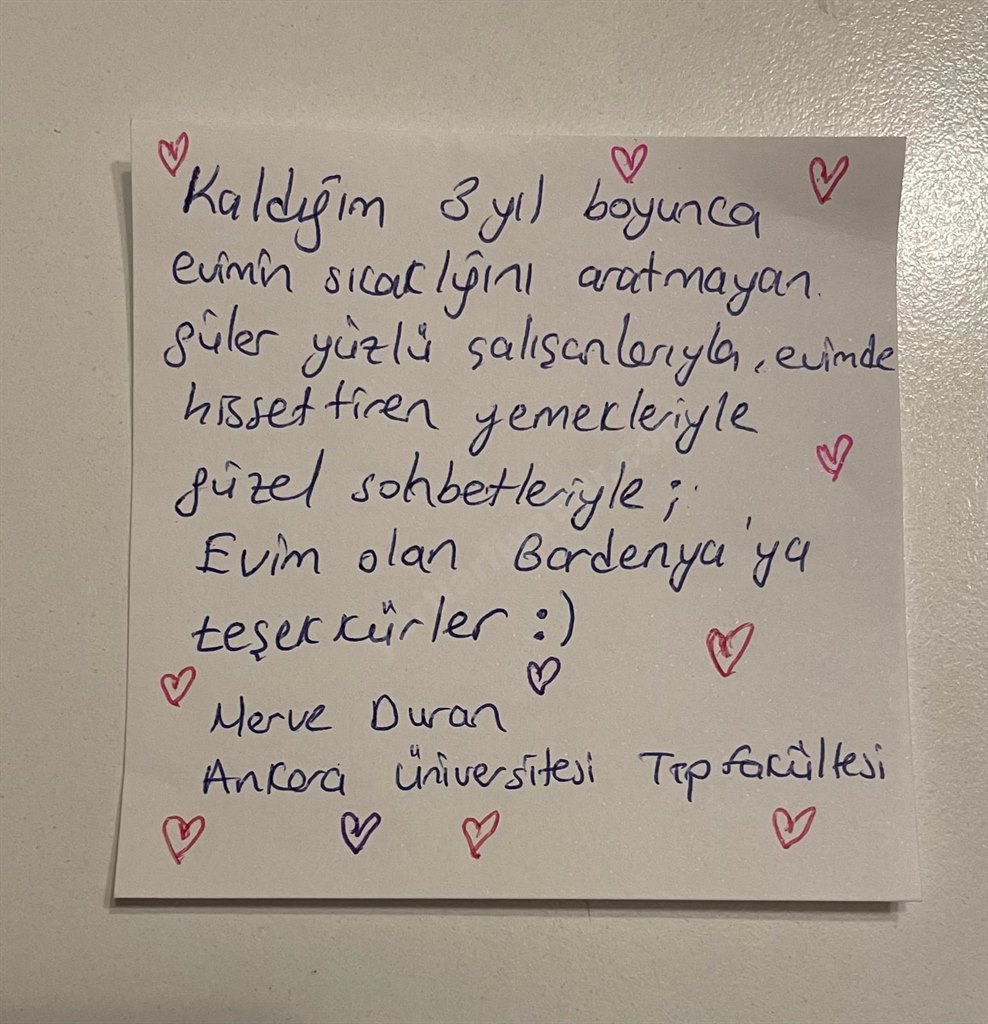 Kaldığım 3 yıl boyunca
evimin sıcaklığını aratmayan
güler yüzlü çalışanlarıyla, evimde
hissettiren yemekleriyle
güzel sohbetleriyle ;
Evim olan Bordenya'ya
teşekkürler :)
Merve Duran
Ankara Üniversitesi Tıp fakültesi